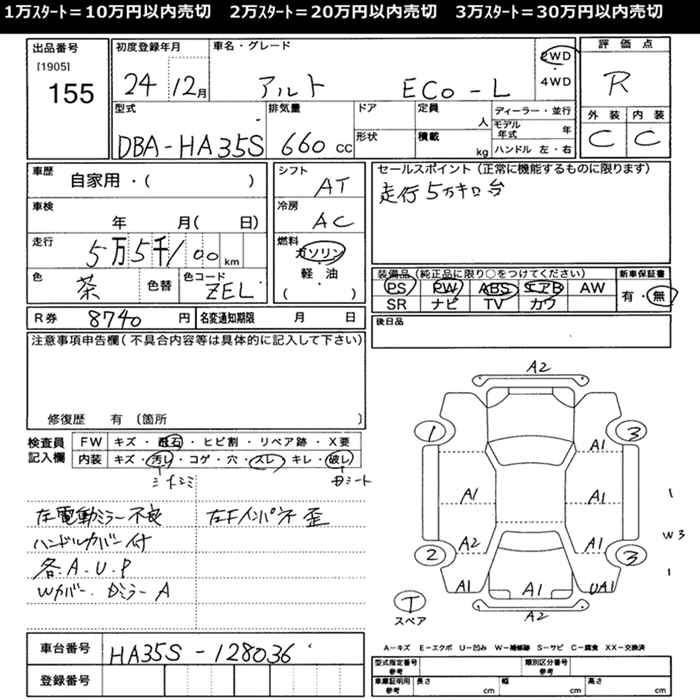 1万ｽﾀｰﾄ＝10万円以内売切　2万ｽﾀｰﾄ＝20万円以内売切　3万ｽﾀｰﾄ＝30万円以内売切
出品番号
[1905]
155
初度登録年月
24 12月
車名・グレード
アルト ECO-L
2WD
・
4WD
評価点
R
外装 内装
C C
型式
DBA-HA35S
排気量
660 cc
ドア
形状
定員 人
積載 kg
ディーラー・並行
モデル年式 年
ハンドル 左・右
車歴
自家用・( )
車検 年 月( 日)
走行
5万5千100 km
色
茶 色替
色コード
ZEL
シフト
AT
冷房
AC
燃料
ガソリン
軽・油
( )
セールスポイント（正常に機能するものに限ります）
走行5万キロ台
装備品（純正品に限り○をつけてください）
PS PW ABS エアB AW
SR ナビ TV カワ
新車保証書
有・無
R券 8740 円
名変通知期限 月 日
後日品
注意事項申告欄（不具合内容等は具体的に記入して下さい）
修復歴 有 〔箇所 〕
検査員
記入欄
FW キズ・飛石・ヒビ割・リペア跡・X要
内装 キズ・汚レ・コゲ・穴・スレ・キレ・破レ
左電動ミラー不良
ハンドルカバー付
各.A.U.P
Wカバー.Dミラー A
左Fインパネ 歪
A2
1 3
A1
A1 A1
A2 A1
2 3
A1 A1 UA1
A2
1
W3
1
T
スペア
A－キズ E－エクボ U－凹み W－補修跡 S－サビ C－腐食 XX－交換済
車台番号
HA35S-128036
登録番号
型式指定番号
参考
類別区分番号
参考
車庫証明用
参考
長さ cm
幅 cm
高さ cm